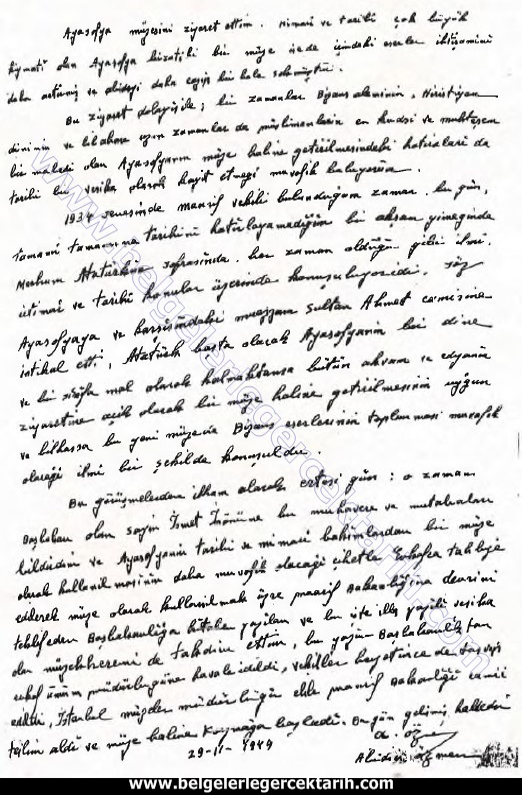 Ayasofya müzesini ziyaret ettim. Mimari ve tarihi çok büyük
kıymeti olan Ayasofya bizatihi bir müze ise de içindeki eserler ihtişamını
daha artırmış ve abideyi daha bir hale sokmuştur.
Bu ziyaret dolayısile; bir zamanlar Bizans aleminin, Hıristiyan
dininin ve bilahare uzun zamanlar da müslimanların en kudsi ve muhteşem
bir mabedi olan Ayasofyanın müze haline getirilmesindeki hatıraları da
tarihi bir vesika olarak kayıt etmeği muvafık buluyorum.
1934 senesinde maarif vekili bulunduğum zaman, bu gün,
tamamı tamamına tarihini hatırlayamadığım bir akşam yemeğinde
Merhum Atatürkün sofrasında, her zaman olduğu gibi ilmi,
içtimai ve tarihi konular üzerinde konuşuluyordu. Söz
Ayasofyaya ve karşısındaki muazzam Sultan Ahmet camisine
intikal etti, Atatürk başta olarak Ayasofyanın bir dine
ve bir sınıfa mal olarak kalmaktansa bütün akvam ve edyanın
ziyaretine açık olarak bir müze haline getirilmesinin uygun
ve bilhassa bu yeni müzede Bizans eserlerinin toplanması muvafık
olacağı ilmi bir şekilde konuşuldu.
Bu görüşmelerden ilham alarak ertesi gün: o zaman
Başbakan olan sayın İsmet İnönüne bu muhavere ve mutalaaları
bildirdim ve Ayasofyanın tarihi ve mimari bakımlardan bir müze
olarak kullanılmasının daha muvafık olacağı cihetle Evkafca tahliye
edilerek müze olarak kullanılmak üzre maarif Bakanlığına devrini
teklif eden Başbakanlığa hitabe yazılan ve bu işte ilk yazılı vesika
olan müzekkeremi de takdim ettim, bu yazım Başbakanlıktan
evkaf umum müdürlüğüne havale edildi, vekiller heyetince de tasvip
edildi, İstanbul müzeler müdürlüğü elile maarif Bakanlığı camii
teslim aldı ve müze haline koymağa başladı. Bu gün gelmiş
29-11-1949
A. Öz
Abidin Özmen
www.belgelerlegercektarih.com
www.belgelerlegercektarih.com